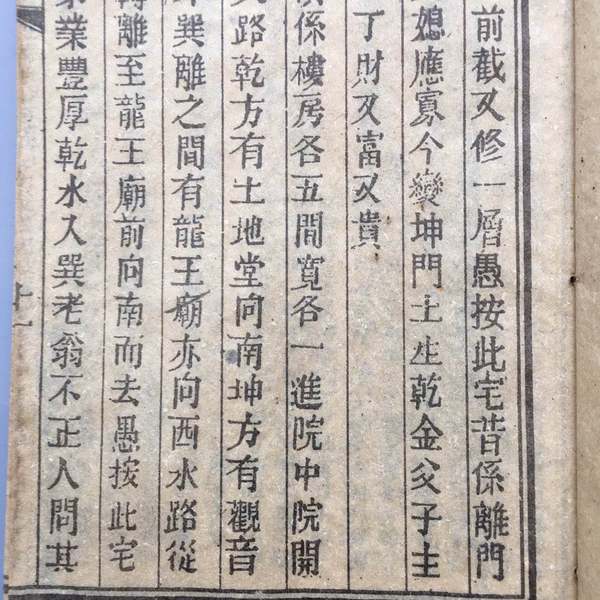 前截又修一層愚按此宅昔係離門
媳應寡今變坤門土生乾金父子主
丁財又富又貴
係樓房各五間寬各一進院中院開
路乾方有土地堂向南坤方有觀音
巽離之間有龍王廟亦向西水路從
離至龍王廟前向南而去愚按此宅
業豐厚乾水入巽老翁不正人問其
十一